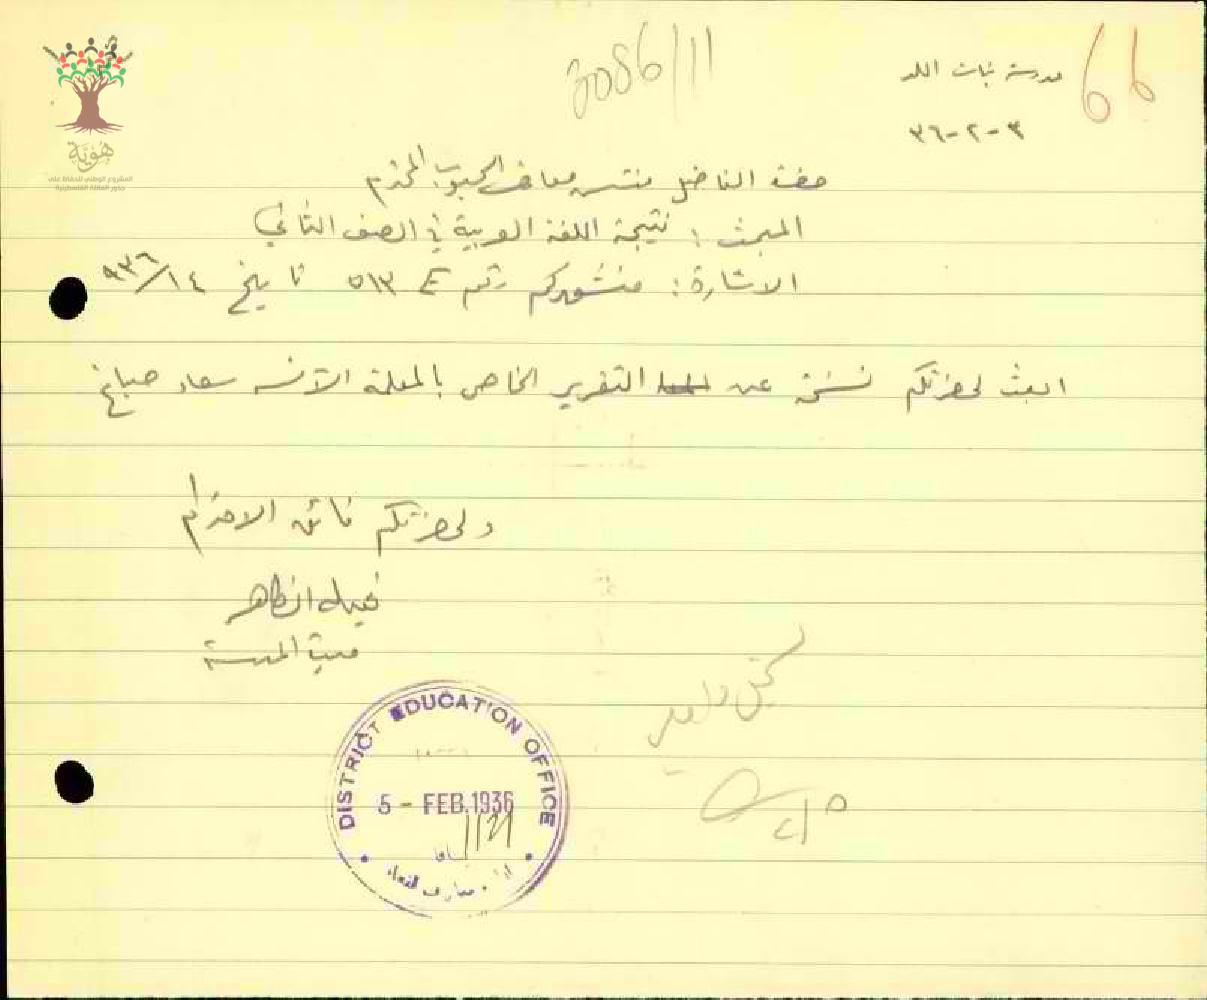 3086/11
66
مدرسة بنات اللد
٣-٢-٣٦
حضرة الفاضل مفتش معارف الجنوب المحترم
المبحث : نتيجة اللغة العربية في الصف الثاني
الاشارة : منشوركم رقم ٥١٣ تاريخ ٩٣٦/١٤
ابعث لحضرتكم نسخة عن التقرير الخاص بالمعلمة الآنسه سعاد صباغ
ولحضرتكم فائق الاحترام
الظاهر
مديرة المدرسة
DISTRICT EDUCATION OFFICE
5 - FEB. 1936
يافا
معارف لقضاء
هُوِيَّة
المشروع الوطني للحفاظ على
جذور العائلة الفلسطينية